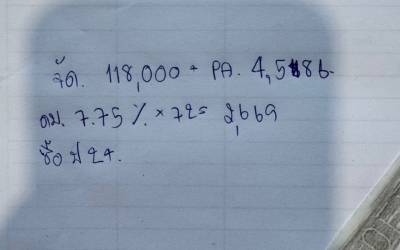 จัด. 118,000 + PA. 4,586.
ดบ. 7.75 % × 72 = 2,669
ชื้อ ป 2+.